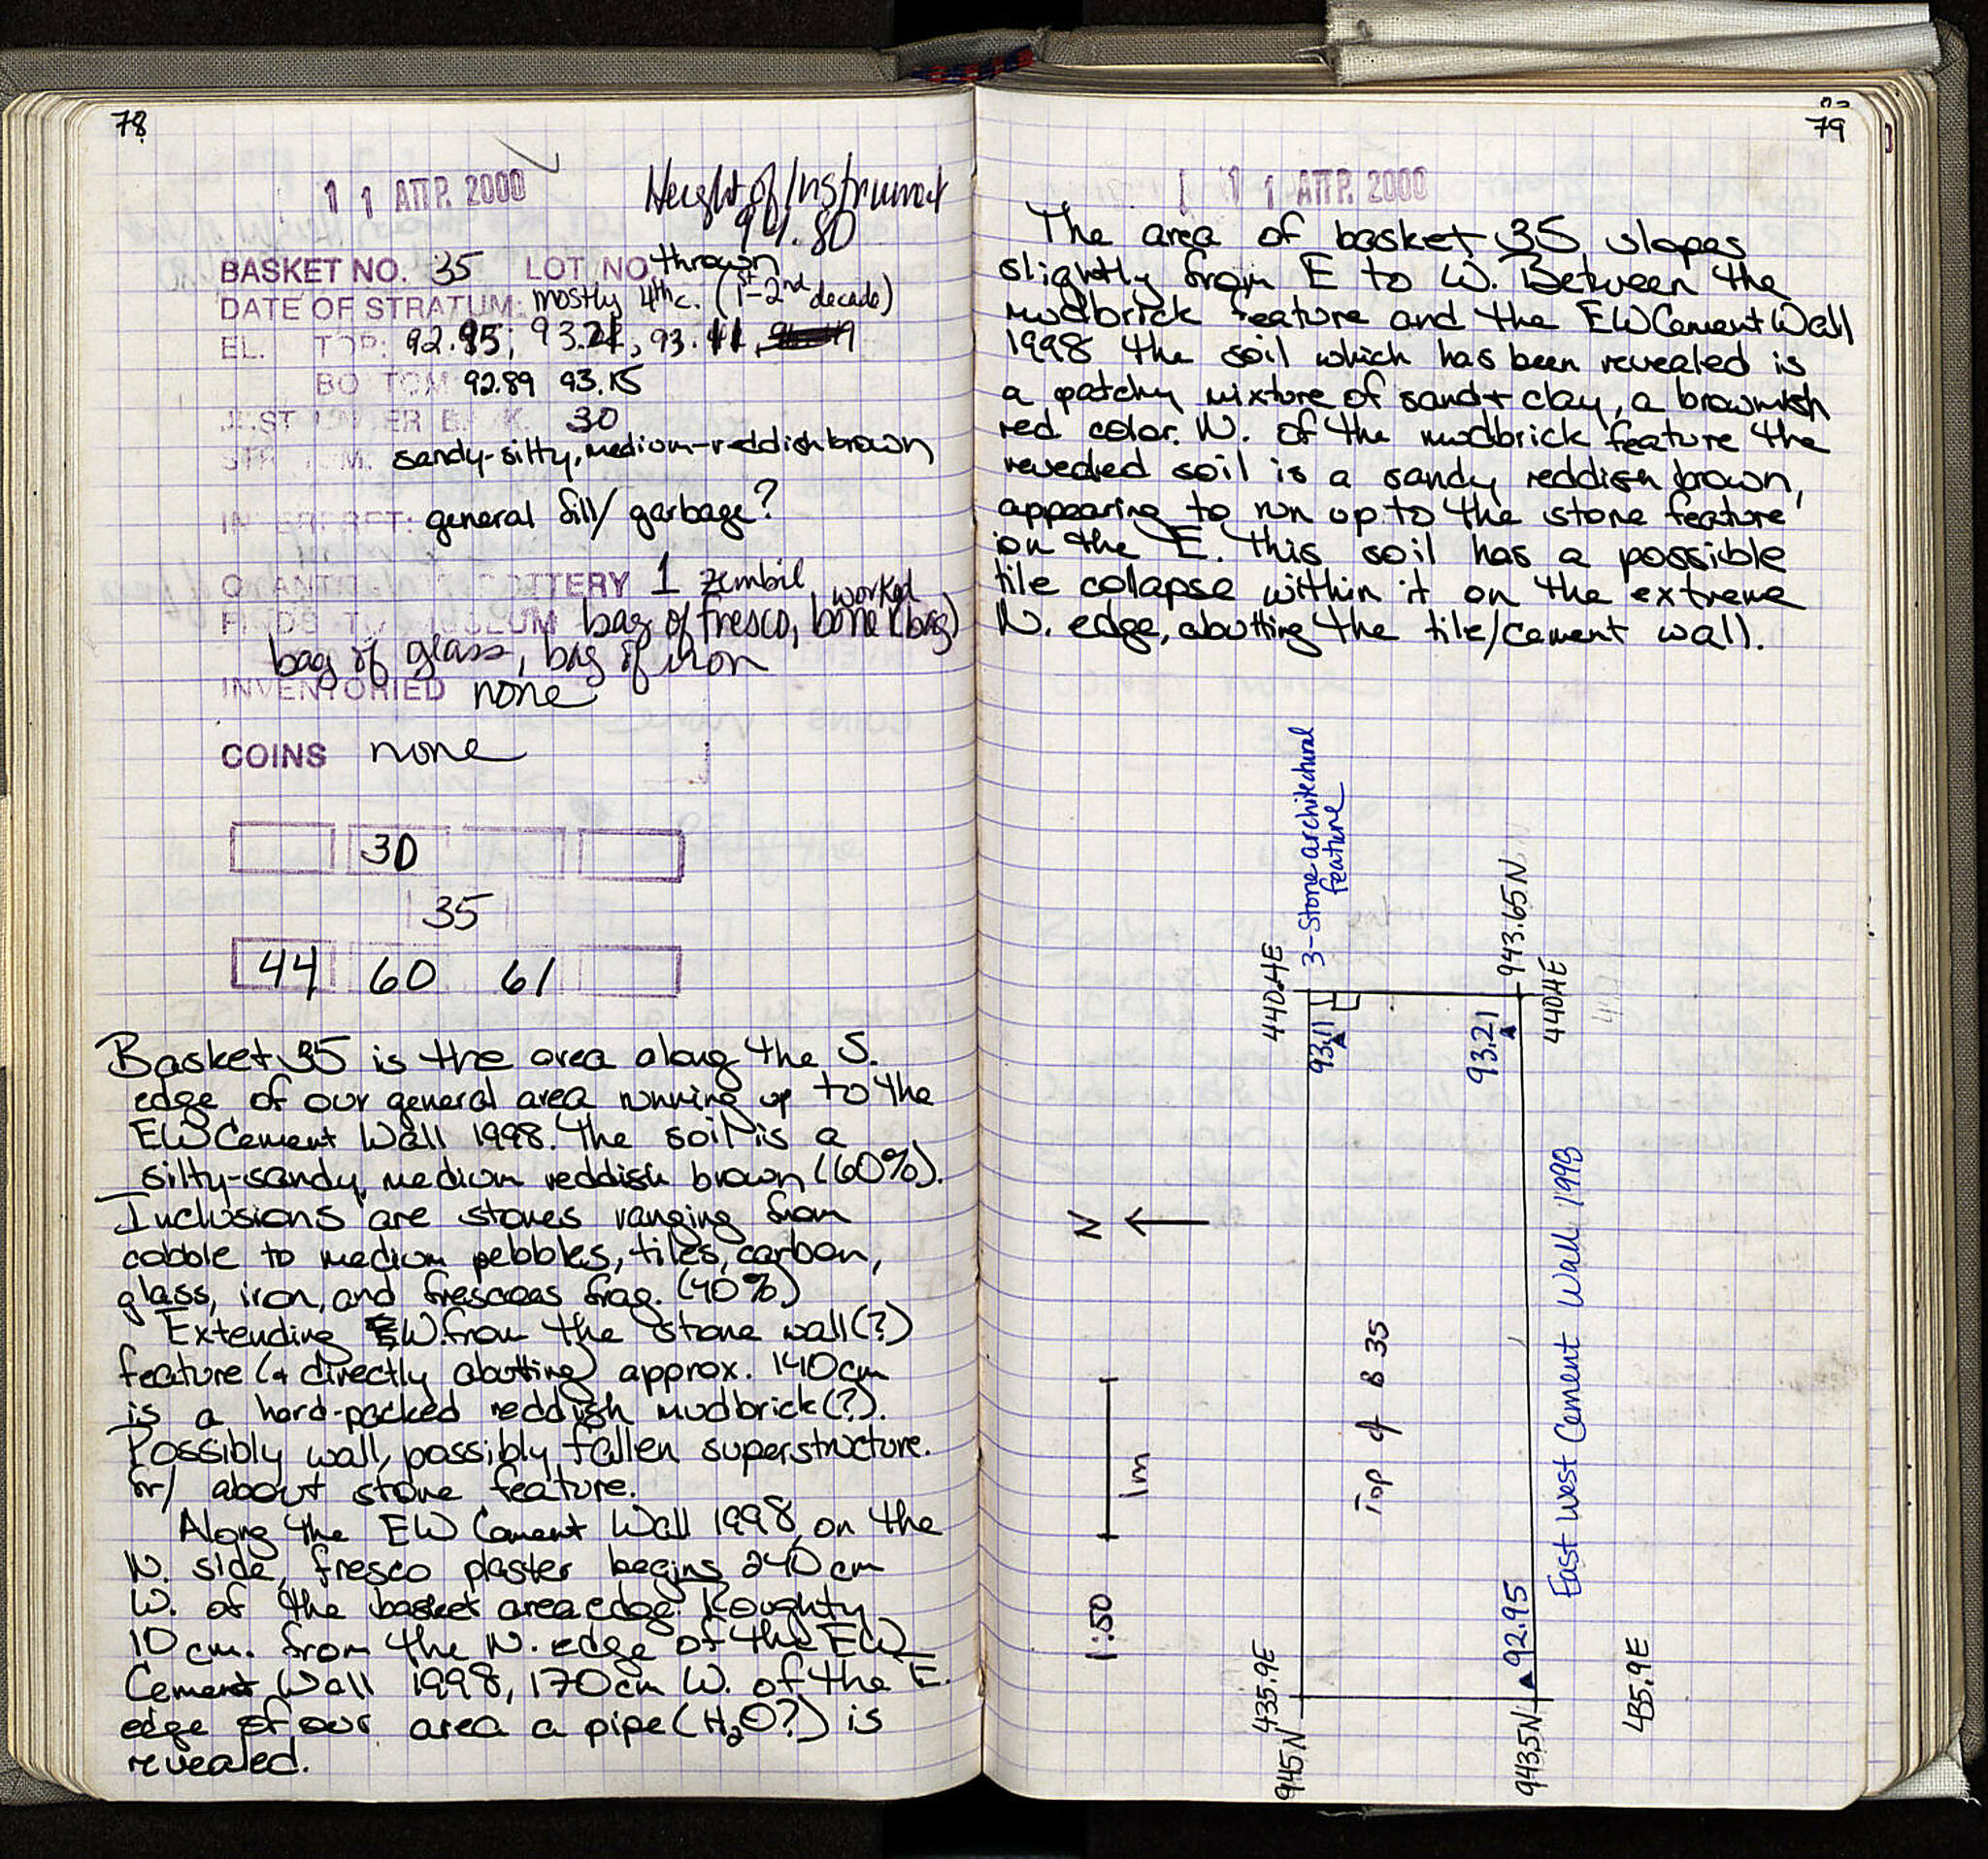 78
1 1 ΑΠΡ. 2000
Height of Instrument
94.80
BASKET NO. 35 LOT NO. thrown
DATE OF STRATUM: mostly 4th c. (1st-2nd decade)
EL. TOP: 92.95; 93.21, 93.11,
BOTTOM 92.89 93.15
JUST UNDER BASK. 30
STRATUM: sandy-silty, medium-reddish brown
INTERPRET: general fill/ garbage?
QUANTITY POTTERY 1 zembil
FINDS TO MUSEUM bag of fresco, worked bone (bag)
bag of glass, bag of iron
INVENTORIED none
COINS none
30
35
44 60 61
Basket 35 is the area along the S.
edge of our general area running up to the
EW Cement Wall 1998. The soil is a
silty-sandy, medium reddish brown (60%).
Inclusions are stones ranging from
cobble to medium pebbles, tiles, carbon,
glass, iron, and frescoes frag. (40%)
Extending W. from the stone wall(?)
feature (+ directly abutting) approx. 140cm
is a hard-packed reddish mudbrick(?).
Possibly wall, possibly fallen superstructure.
for/ about stone feature.
Along the EW Cement Wall 1998, on the
N. side, fresco plaster begins 240 cm
W. of the basket area edge. Roughly
10 cm. from the N. edge of the EW
Cement Wall 1998, 170cm W. of the E.
edge of our area a pipe (H2O?) is
revealed.
79
1 1 ΑΠΡ. 2000
The area of basket 35 slopes
slightly from E to W. Between the
mudbrick feature and the EW Cement Wall
1998 the soil which has been revealed is
a patchy mixture of sand + clay, a brownish
red color. N. of the mudbrick feature the
revealed soil is a sandy reddish brown,
appearing to run up to the stone feature
on the E. This soil has a possible
tile colapse within it on the extreme
N. edge, abutting the tile/cement wall.
3-Stone architectural
feature
440.4E
943.65N
440.4E
93.11
93.21
N
East West Cement Wall 1998
Top of B 35
1m
1:50
92.95
435.9E
435.9E
945N
943.5N